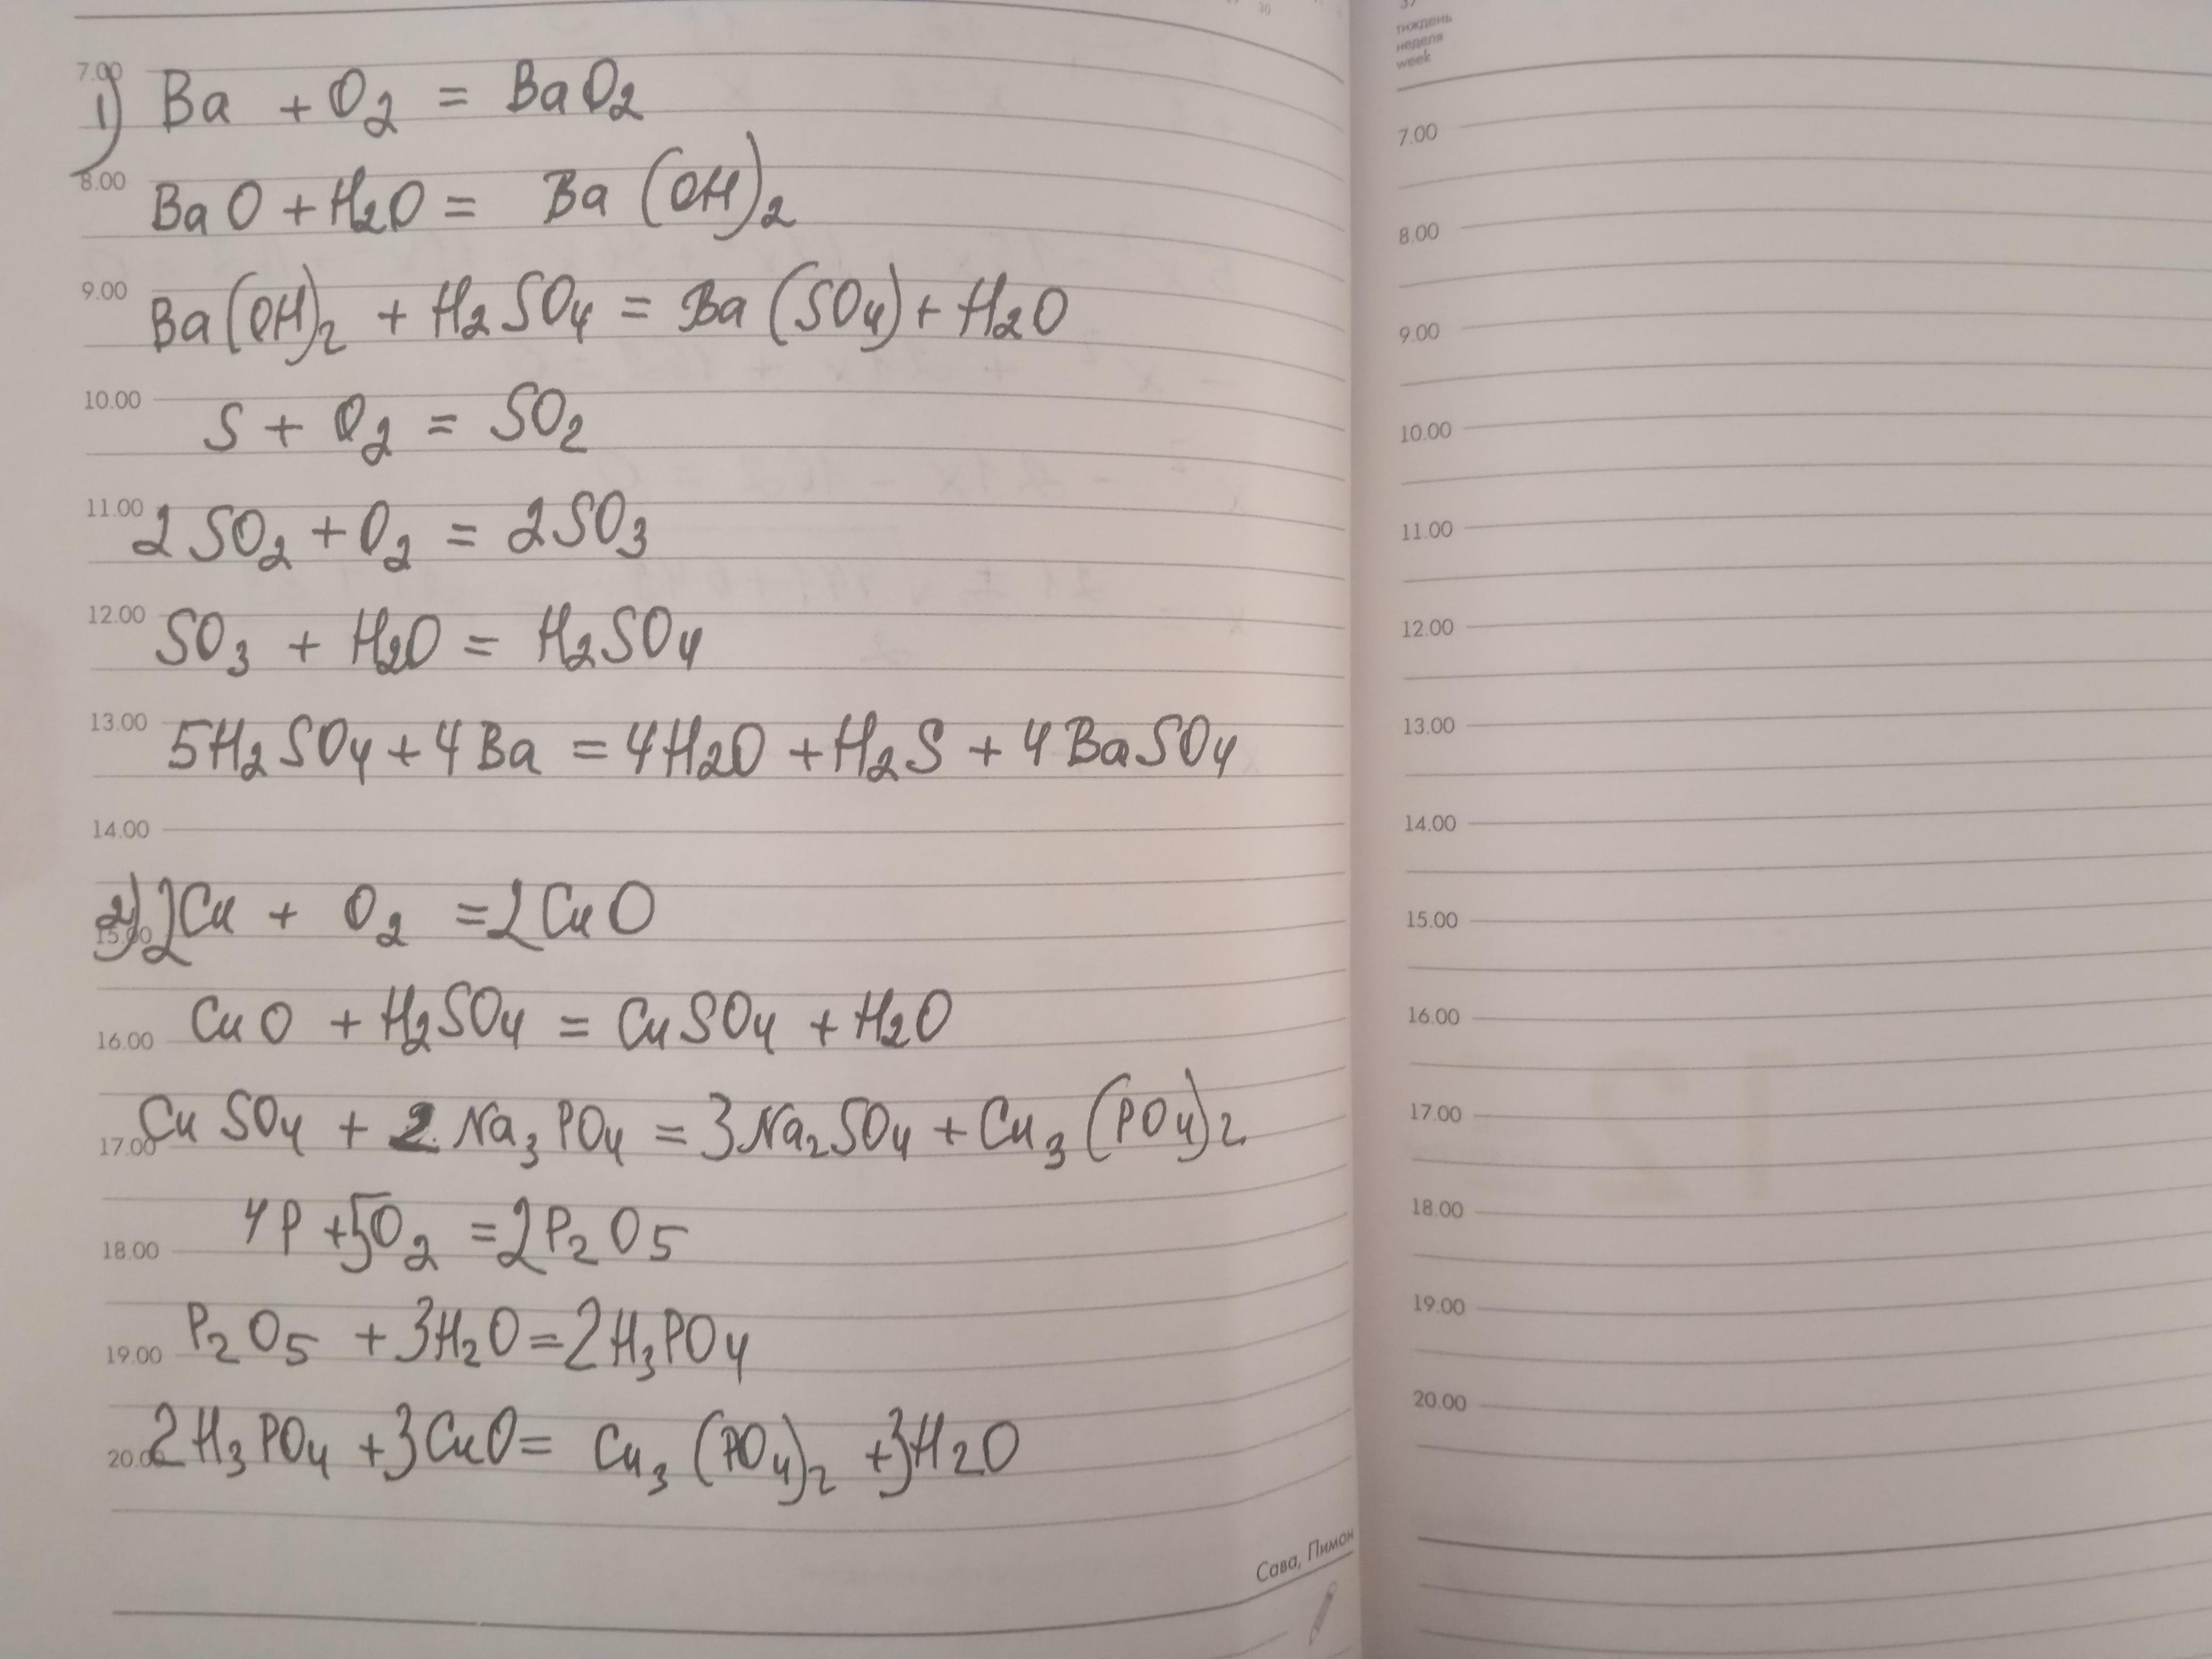 37
тиждень
неделя
week
7.00
1) Ba + O₂ = BaO₂
8.00
BaO + H₂O = Ba(OH)₂
9.00
Ba(OH)₂ + H₂SO₄ = Ba(SO₄) + H₂O
10.00
S + O₂ = SO₂
11.00
2SO₂ + O₂ = 2SO₃
12.00
SO₃ + H₂O = H₂SO₄
13.00
5H₂SO₄ + 4Ba = 4H₂O + H₂S + 4BaSO₄
14.00
2) 2Cu + O₂ = 2CuO
15.00
CuO + H₂SO₄ = CuSO₄ + H₂O
16.00
CuSO₄ + 2Na₃PO₄ = 3Na₂SO₄ + Cu₃(PO₄)₂
17.00
4P + 5O₂ = 2P₂O₅
18.00
P₂O₅ + 3H₂O = 2H₃PO₄
19.00
2H₃PO₄ + 3CuO = Cu₃(PO₄)₂ + 3H₂O
20.00
Сава, Пимон
7.00
8.00
9.00
10.00
11.00
12.00
13.00
14.00
15.00
16.00
17.00
18.00
19.00
20.00